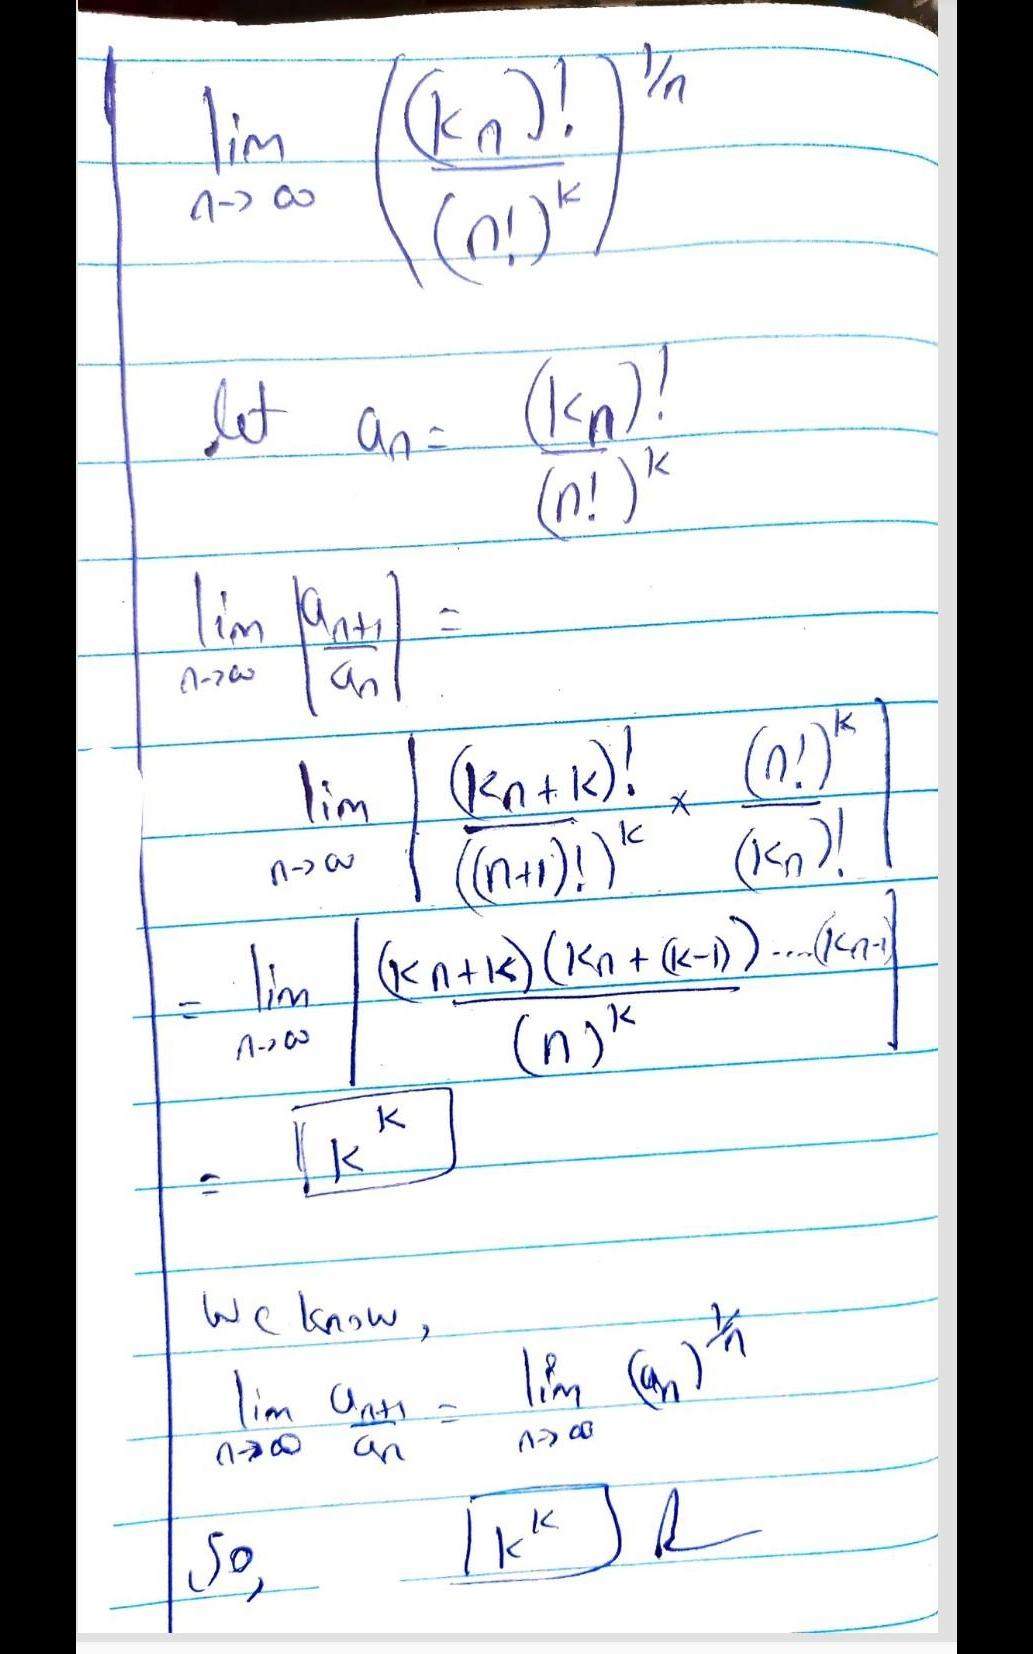 lim n→∞ ((kn)! / (n!)^k)^(1/n)
let a_n = (kn)! / (n!)^k
lim n→∞ |a_{n+1} / a_n| =
lim n→∞ |(kn+k)! / ((n+1)!)^k × (n!)^k / (kn)!|
= lim n→∞ |(kn+k)(kn+(k-1))....(kn-1) / (n)^k|
= k^k
We know,
lim n→∞ a_{n+1} / a_n = lim n→∞ (a_n)^(1/n)
So, k^k